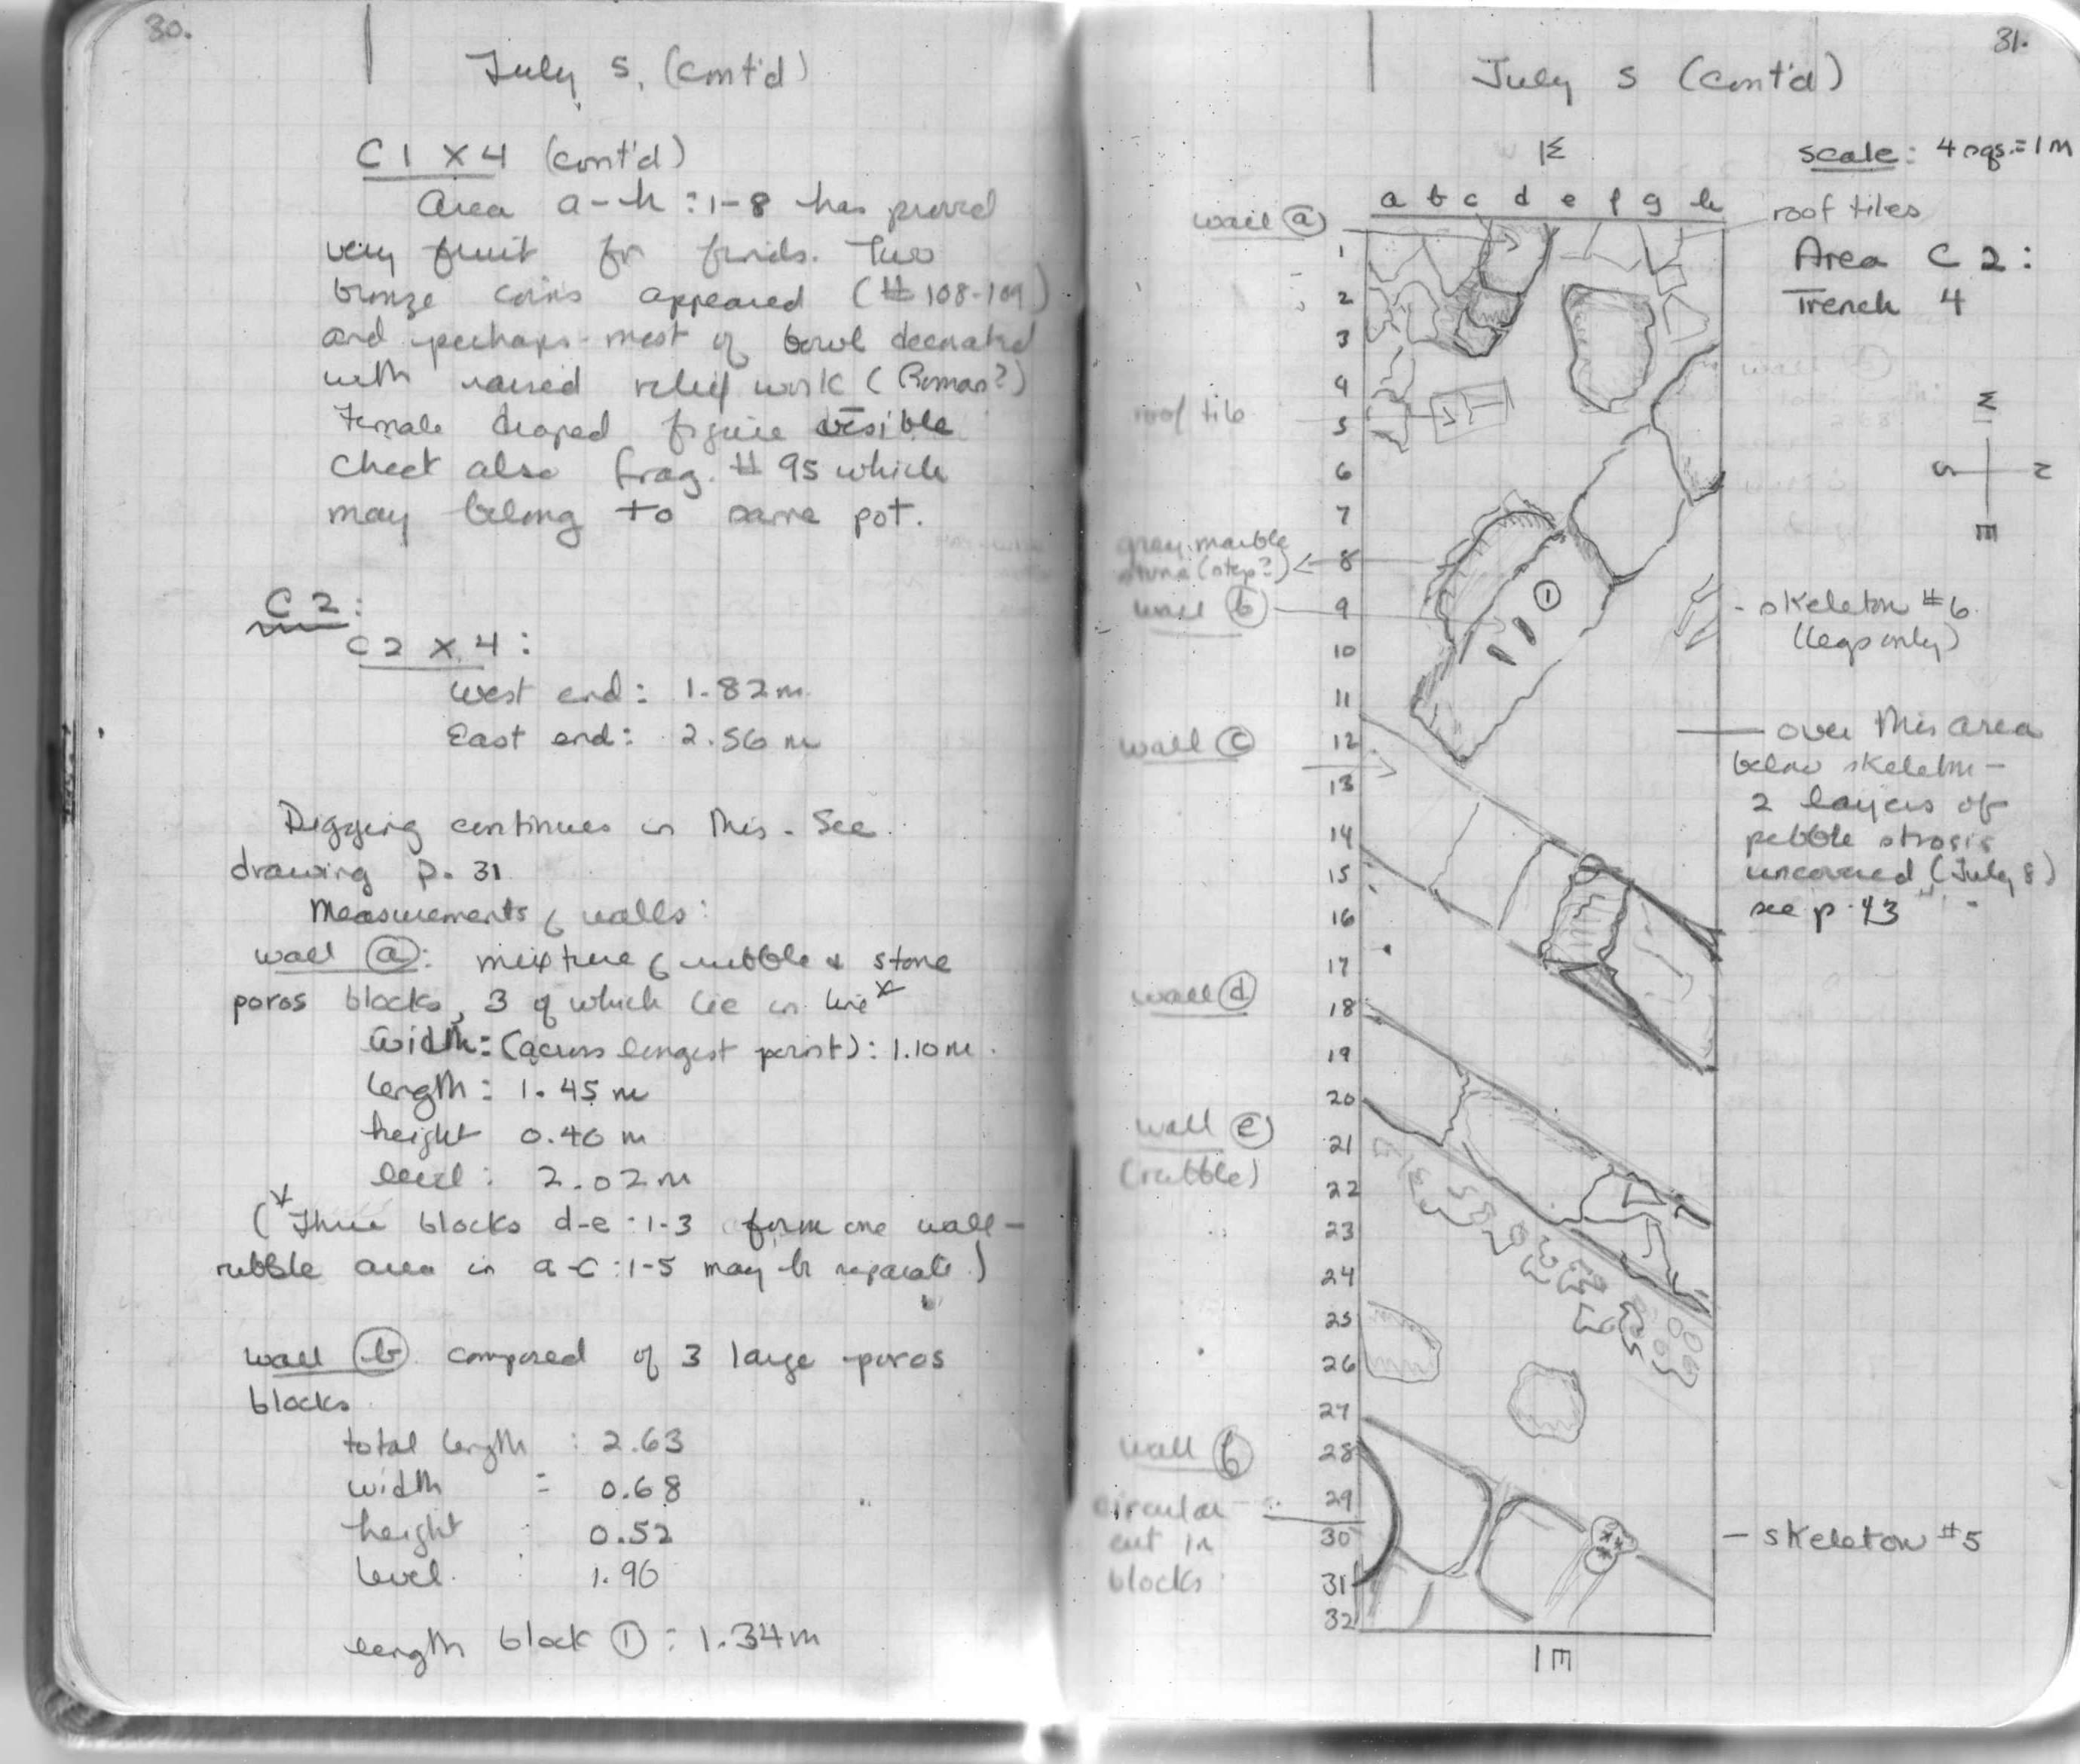 30.
July 5, (cont'd)
C1 X 4 (cont'd)
Area a-h:1-8 has proved
very fruit for finds. Two
bronze coins appeared (#108-109)
and perhaps most of bowl decorated
with raised relief work (Roman?)
Female draped figure visible
Check also frag. #95 which
may belong to same pot.
C2:
C2 X 4:
West end: 1.82m.
East end: 2.56 m
Digging continues in this. See
drawing p. 31
Measurements of walls:
wall ⓐ: mixture of rubble & stone
poros blocks, 3 of which lie in line*
Width: (across longest point): 1.10m.
length: 1.45 m
height 0.40 m
level: 2.02m
(*Three blocks d-e:1-3 form one wall-
rubble area in a-c:1-5 may be separate.)
wall ⓑ composed of 3 large poros
blocks
total length : 2.63
width : 0.68
height : 0.52
level : 1.96
length block ① : 1.34m
31.
July 5 (cont'd)
scale: 4 sqs.=1M
W
a b c d e f g h
wall ⓐ
roof tiles
Area C2:
Trench 4
1
2
3
4
roof tile
5
6
7
gray marble
8
stone (step?)
wall ⓑ
9
①
10
11
wall ⓒ
12
13
14
15
16
17
wall ⓓ
18
19
20
wall ⓔ
21
(rubble)
22
23
24
25
26
27
wall ⓕ
28
circular
29
cut in
30
blocks
31
32
E
W
S
N
E
- skeleton #6
(legs only)
over this area
below skeleton -
2 layers of
pebble strosis
uncovered (July 8)
see p. 43
- skeleton #5